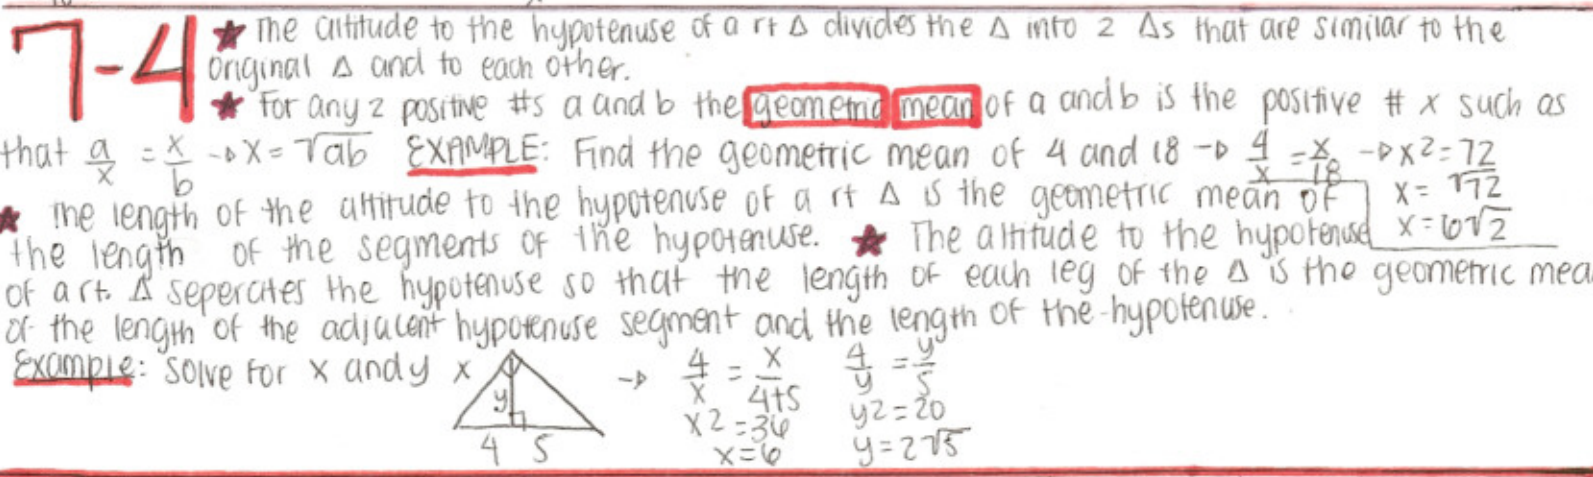 7-4 ★ The altitude to the hypotenuse of a rt △ divides the △ into 2 △s that are similar to the
original △ and to each other.
★ For any 2 positive #s a and b the geometric mean of a and b is the positive # x such as
that a/x = x/b → x = √ab EXAMPLE: Find the geometric mean of 4 and 18 → 4/x = x/18 → x2 = 72
x = √72
x = 6√2
★ The length of the altitude to the hypotenuse of a rt △ is the geometric mean of
the length of the segments of the hypotenuse. ★ The altitude to the hypotenuse
of a rt. △ seperates the hypotenuse so that the length of each leg of the △ is the geometric mea
of the length of the adjacent hypotenuse segment and the length of the hypotenuse.
Example: Solve for x and y
x
y
4 5
→ 4/x = x/4+5
x2 = 36
x = 6
4/y = y/5
y2 = 20
y = 2√5